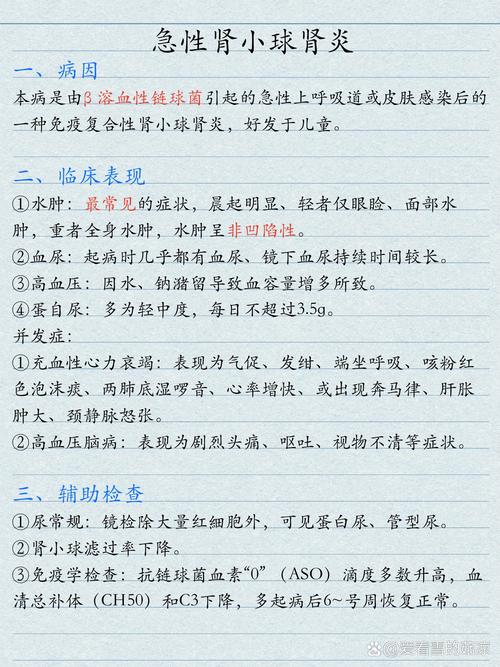 急性肾小球肾炎
一、病因
本病是由β溶血性链球菌引起的急性上呼吸道或皮肤感染后的
一种免疫复合性肾小球肾炎，好发于儿童。
二、临床表现
①水肿：最常见的症状，晨起明显、轻者仅眼睑、面部水
肿，重者全身水肿，水肿呈非凹陷性。
②血尿：起病时几乎都有血尿、镜下血尿持续时间较长。
③高血压：因水、钠潴留导致血容量增多所致。
④蛋白尿：多为轻中度，每日不超过3.5g。
并发症：
①充血性心力衰竭：表现为气促、发绀、端坐呼吸、咳粉红
色泡沫痰、两肺底湿啰音、心率增快、或出现奔马律、肝胀
肿大、颈静脉怒张。
②高血压脑病：表现为剧烈头痛、呕吐、视物不清等症状。
三、辅助检查
①尿常规：镜检除大量红细胞外，可见蛋白尿、管型尿。
②肾小球滤过率下降。
③免疫学检查：抗链球菌血素“0”（ASO）滴度多数升高，血
清总补体（CH50）和C3下降，多起病后6~号周恢复正常。
爱看雪的